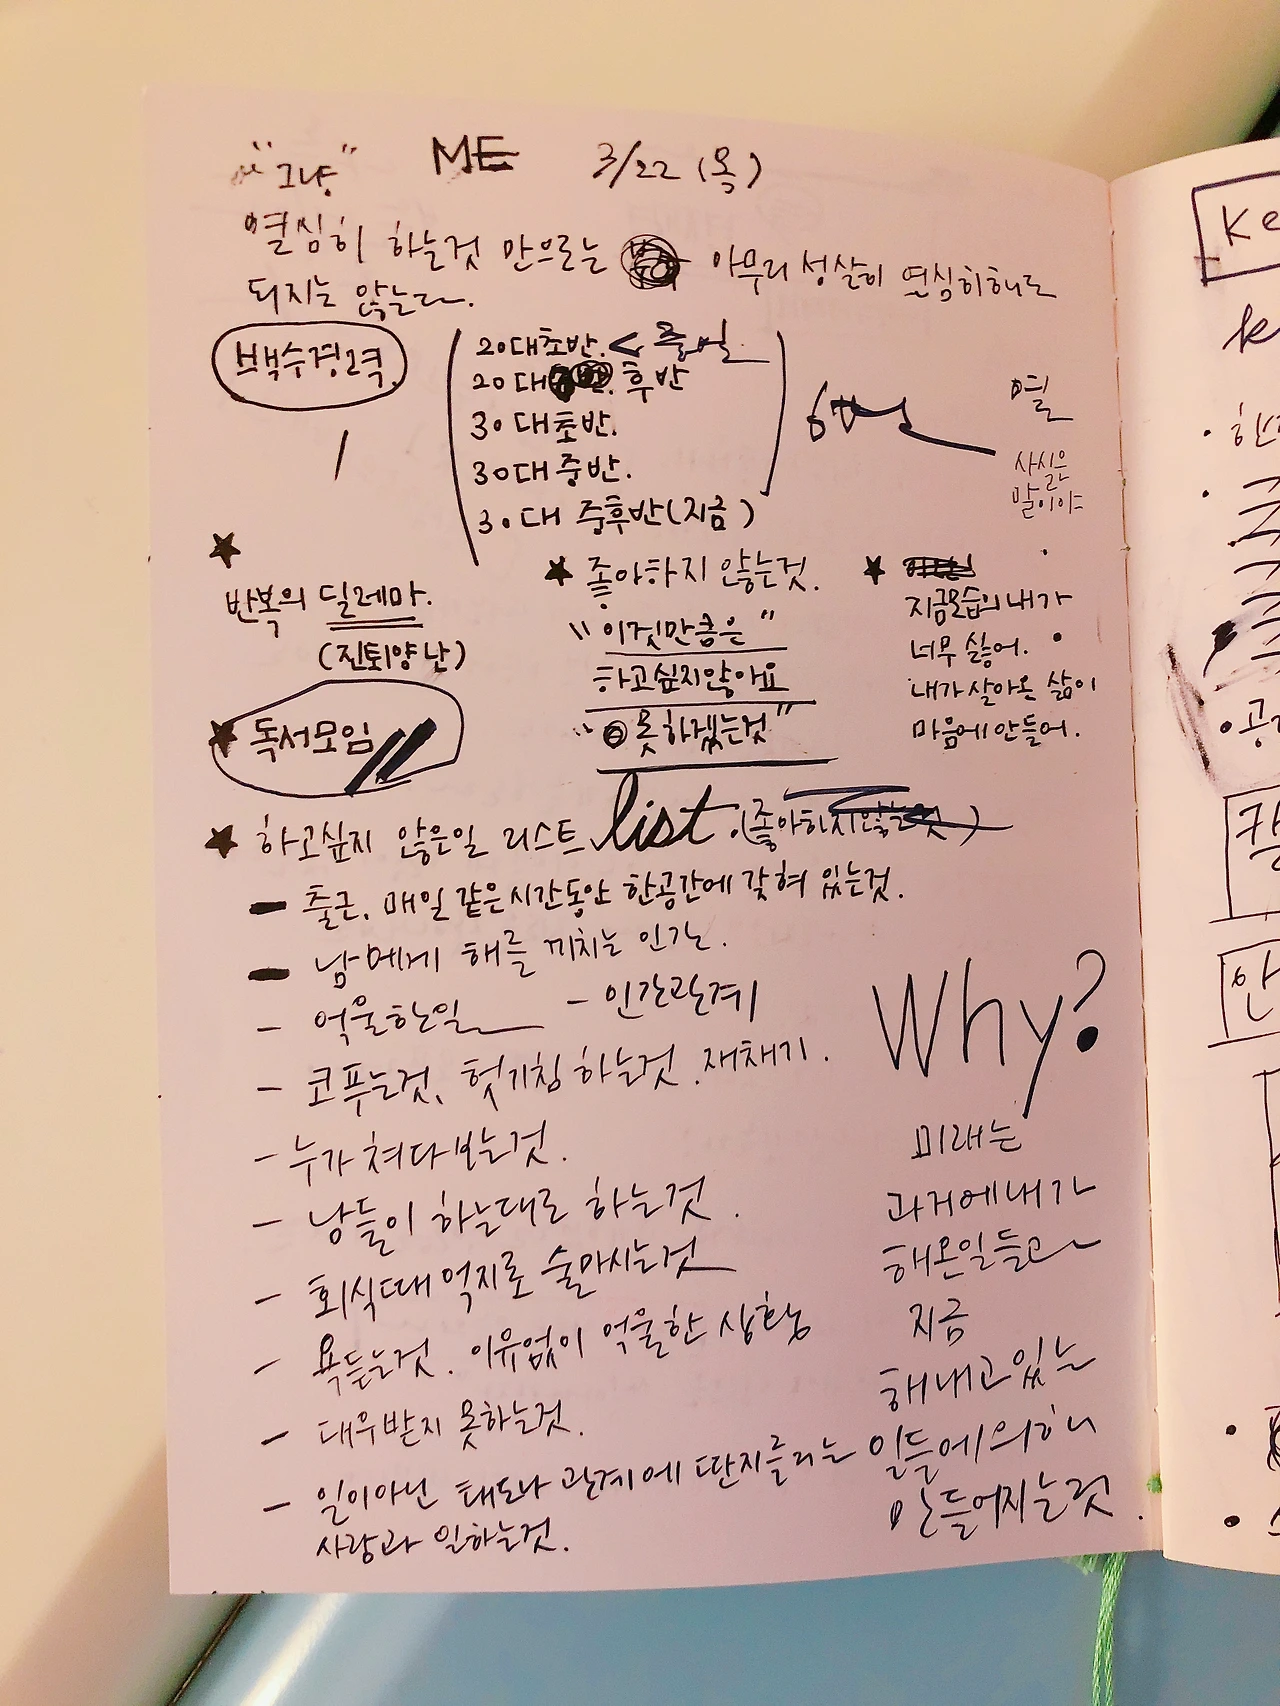 "그냥" ME 3/22 (목)
열심히 하는것 만으로는 아무리 성실히 열심히해도
되지는 않는다.
백수경력
20대초반. <
20대 후반
30대초반.
30대 중반.
30대 중후반(지금)
열
사실은
말이야
★
반복의 딜레마.
(진퇴양난)
★ 독서모임
★ 좋아하지 않는것.
"이것만큼은"
하고싶지않아요
"못하겠는것"
★
지금모습의 내가
너무 싫어.
내가 살아온 삶이
마음에 안들어.
★ 하고싶지 않은일 리스트 list. (좋아하지않는것)
- 출근, 매일 같은시간동안 한공간에 갖혀 있는것.
- 남에게 해를 끼치는 인간.
- 억울한일 - 인간관계
- 코푸는것, 헛기침 하는것. 재채기.
- 누가 쳐다보는것.
- 남들이 하는대로 하는것.
- 회식때 억지로 술마시는것
- 욕듣는것. 이유없이 억울한 상황
- 대우받지 못하는것.
- 일이아닌 태도나 관계에 딴지를거는
사람과 일하는것.
Why?
미래는
과거에 내가
해온일들과
지금
해내고있는
일들에 의해
만들어지는것.
Ke
k